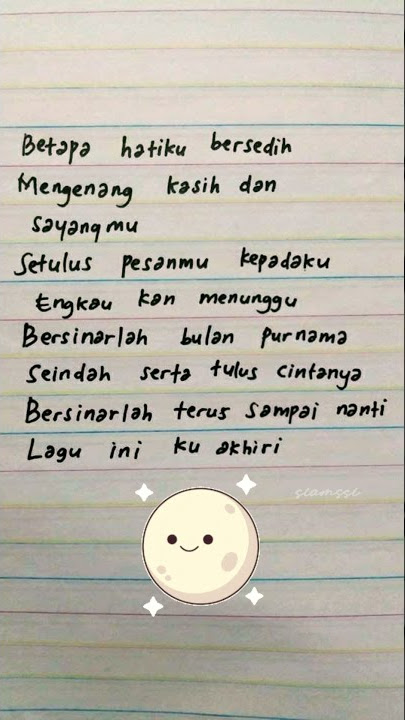 Betapa hatiku bersedih
Mengenang kasih dan
sayangmu
Setulus pesanmu kepadaku
Engkau kan menunggu
Bersinarlah bulan purnama
Seindah serta tulus cintanya
Bersinarlah terus sampai nanti
Lagu ini ku akhiri
siamssi